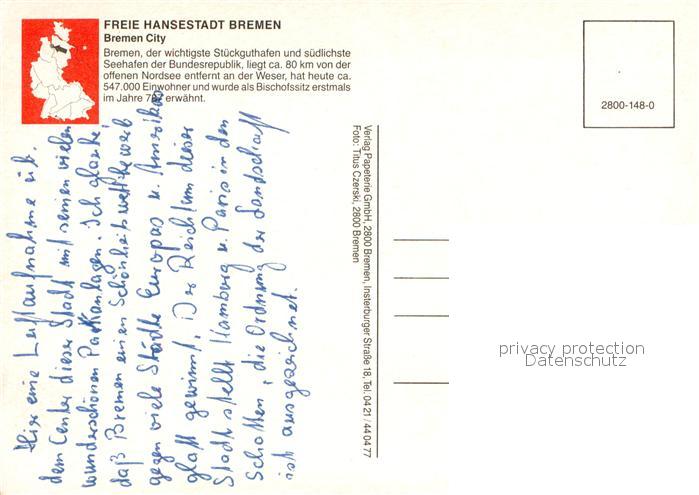 FREIE HANSESTADT BREMEN
Bremen City
Bremen, der wichtigste Stückguthafen und südlichste
Seehafen der Bundesrepublik, liegt ca. 80 km von der
offenen Nordsee entfernt an der Weser, hat heute ca.
547.000 Einwohner und wurde als Bischofssitz erstmals
im Jahre erwähnt.
2800-148-0
Hier eine Luftaufnahme
dem Center dieser Stadt mit seinen vielen
wunderschönen Parkanlagen. Ich glaube,
daß Bremen einen Schönheitswettbewerb
gegen viele Städte Europas u. Amerikas
glatt gewinnt. Der Reichtum dieser
Stadt stellt Hamburg u. Paris in den
Schatten, die Ordnung der Landschaft
ist ausgezeichnet.
Verlag Papeterie GmbH, 2800 Bremen, Insterburger Straße 18, Tel. 04 21 / 44 04 77
Foto: Titus Czerski, 2800 Bremen
privacy protection
Datenschutz